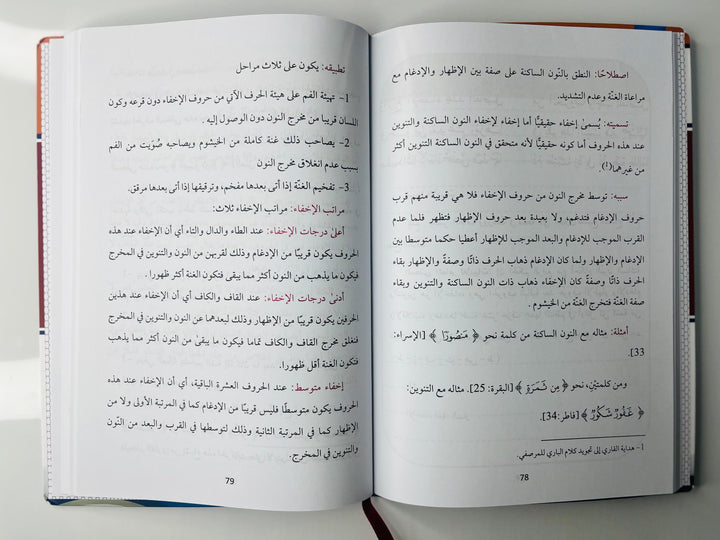 اصطلاحًا: النطق بالنّون الساكنة على صفة بين الإظهار والإدغام مع
مراعاة الغنّة وعدم التشديد.
تسميته: يُسمىٰ إخفاء حقيقيًّا أما إخفاء لإخفاء النون الساكنة والتنوين
عند هذه الحروف أما كونه حقيقيًّا لأنه متحقق في النون الساكنة والتنوين أكثر
من غيرهما(١).
سببه: توسط مخرج النون من حروف الإخفاء فلا هي قريبة منهم قرب
حروف الإدغام فتدغم، ولا بعيدة بعد حروف الإظهار فتظهر فلما عدم
القرب الموجب للإدغام والبعد الموجب للإظهار أعطيا حكما متوسطا بين
الإدغام والإظهار ولما كان الإدغام ذهاب الحرف ذاتًا وصفةً والإظهار بقاء
الحرف ذاتًا وصفةً كان الإخفاء ذهاب ذات النون الساكنة والتنوين وبقاء
صفة الغنّة فتخرج الغنّة من الخيشوم.
أمثلة: مثاله مع النون الساكنة من كلمة نحو ﴿ مَنصُورًا ﴾ [الإسراء:
33].
ومن كلمتين، نحو ﴿ مِن ثَمَرَةٍ ﴾ [البقرة: 25]. مثاله مع التنوين:
﴿ غَفُورٌ شَكُورٌ ﴾ [فاطر:34].
1- هداية القاري إلى تجويد كلام الباري للمرصفي.
78
تطبيقه: يكون على ثلاث مراحل
1- تهيئة الفم على هيئة الحرف الآتي من حروف الإخفاء دون قرعه وكون
اللسان قريبا من مخرج النون دون الوصول إليه.
2- يصاحب ذلك غنة كاملة من الخيشوم ويصاحبه صُوَيت من الفم
بسبب عدم انغلاق مخرج النون
3- تفخيم الغنّة إذا أتى بعدها مفخم، وترقيقها إذا أتى بعدها مرقق.
مراتب الإخفاء: مراتب الإخفاء ثلاث:
أعلىٰ درجات الإخفاء: عند الطاء والدال والتاء أي أن الإخفاء عند هذه
الحروف يكون قريبًا من الإدغام وذلك لقربهن من النون والتنوين في المخرج
فيكون ما يذهب من النون أكثر مما يبقى فتكون الغنة أكثر ظهورا.
أدنىٰ درجات الإخفاء: عند القاف والكاف أي أن الإخفاء عند هذين
الحرفين يكون قريبًا من الإظهار وذلك لبعدهما عن النون والتنوين في المخرج
فنغلق مخرج القاف والكاف تماما فيكون ما يبقىٰ من النون أكثر مما يذهب
فتكون الغنة أقل ظهورا.
إخفاء متوسط: عند الحروف العشرة الباقية، أي أن الإخفاء عند هذه
الحروف يكون متوسطًا فليس قريبًا من الإدغام كما في المرتبة الأولى ولا من
الإظهار كما في المرتبة الثانية وذلك لتوسطها في القرب والبعد من النّون
والتنوين في المخرج.
79